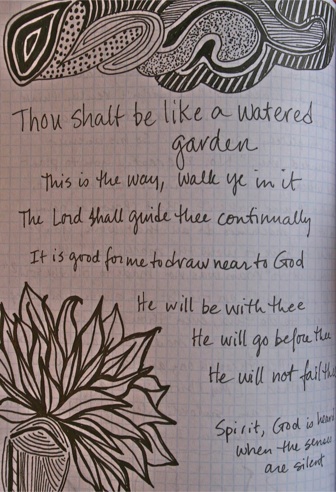 Thou shalt be like a watered
garden
This is the way, walk ye in it
The Lord shall guide thee continually
It is good for me to draw near to God
He will be with thee
He will go before thee
He will not fail
Spirit, God is heard
when the senses
are silent